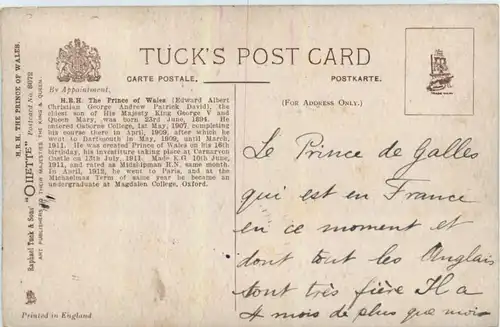 TUCK'S POST CARD
CARTE POSTALE.
POSTKARTE.
By Appointment.
(FOR ADDRESS ONLY.)
H.R.H. The Prince of Wales (Edward Albert
Christian George Andrew Patrick David), the
eldest son of His Majesty King George V and
Queen Mary, was born 23rd June, 1894. He
entered Osborne College, 1st May, 1907, completing
his course there in April, 1909, after which he
went to Dartmouth in May, 1909, until March,
1911. He was created Prince of Wales on his 16th
birthday, his investiture taking place at Carnarvon
Castle on 13th July, 1911. Made K.G 10th June,
1911, and rated as Midshipman R.N. same month.
In April, 1912, he went to Paris, and at the
Michaelmas Term of same year he became an
undergraduate at Magdalen College, Oxford.
H.R.H. THE PRINCE OF WALES.
Raphael Tuck & Sons' "OILETTE" Postcard No. 8072
ART PUBLISHERS TO THEIR MAJESTIES THE KING & QUEEN
Printed in England
Le Prince de Galles
qui est en France
en ce moment et
dont tout les Anglais
sont très fière Il a
4 mois de plus que moi